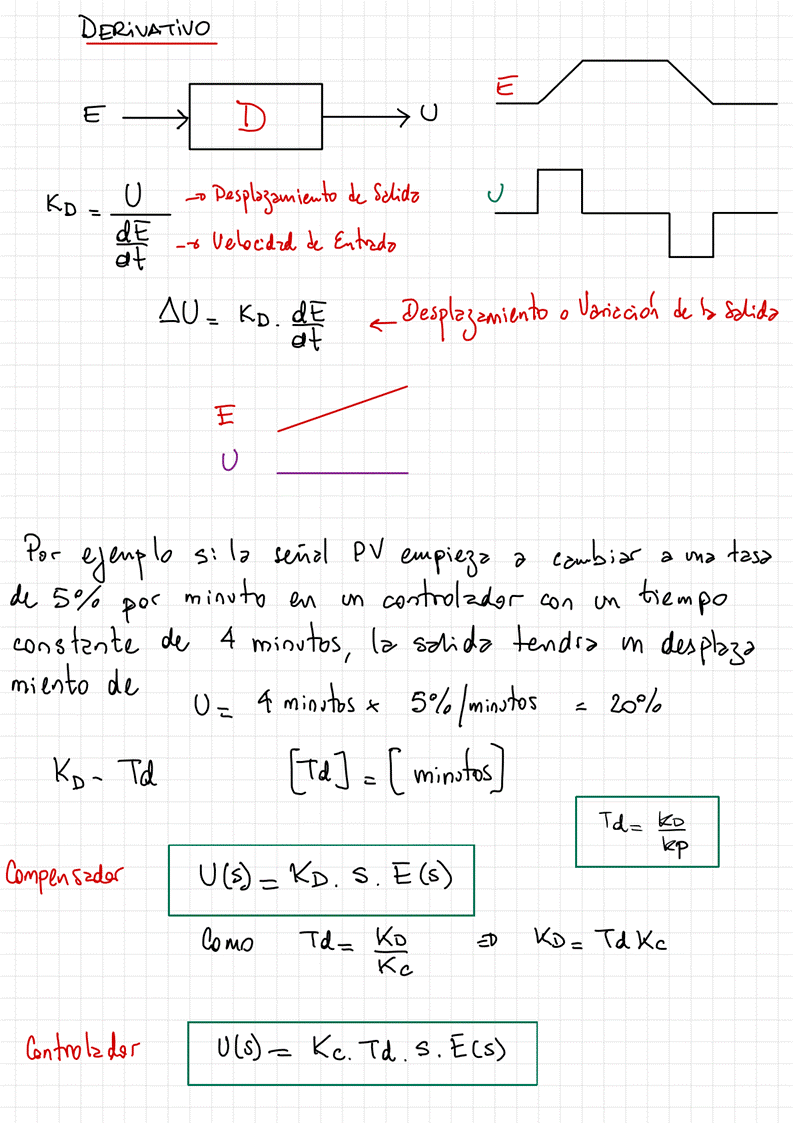 DERIVATIVO
E → D → U
E
K_D = U / (dE/dt)
→ Desplazamiento de Salida
→ Velocidad de Entrada
U
ΔU = K_D . dE/dt ← Desplazamiento o Variación de la Salida
E
U
Por ejemplo si la señal PV empieza a cambiar a una tasa
de 5% por minuto en un controlador con un tiempo
constante de 4 minutos, la salida tendra un desplaza
miento de
U = 4 minutos × 5%/minutos = 20%
K_D - Td [Td] = [minutos]
Td = K_D / Kp
Compensador U(s) = K_D . S . E(s)
Como Td = K_D / Kc ⇒ K_D = Td Kc
Controlador U(s) = Kc . Td . S . E(s)